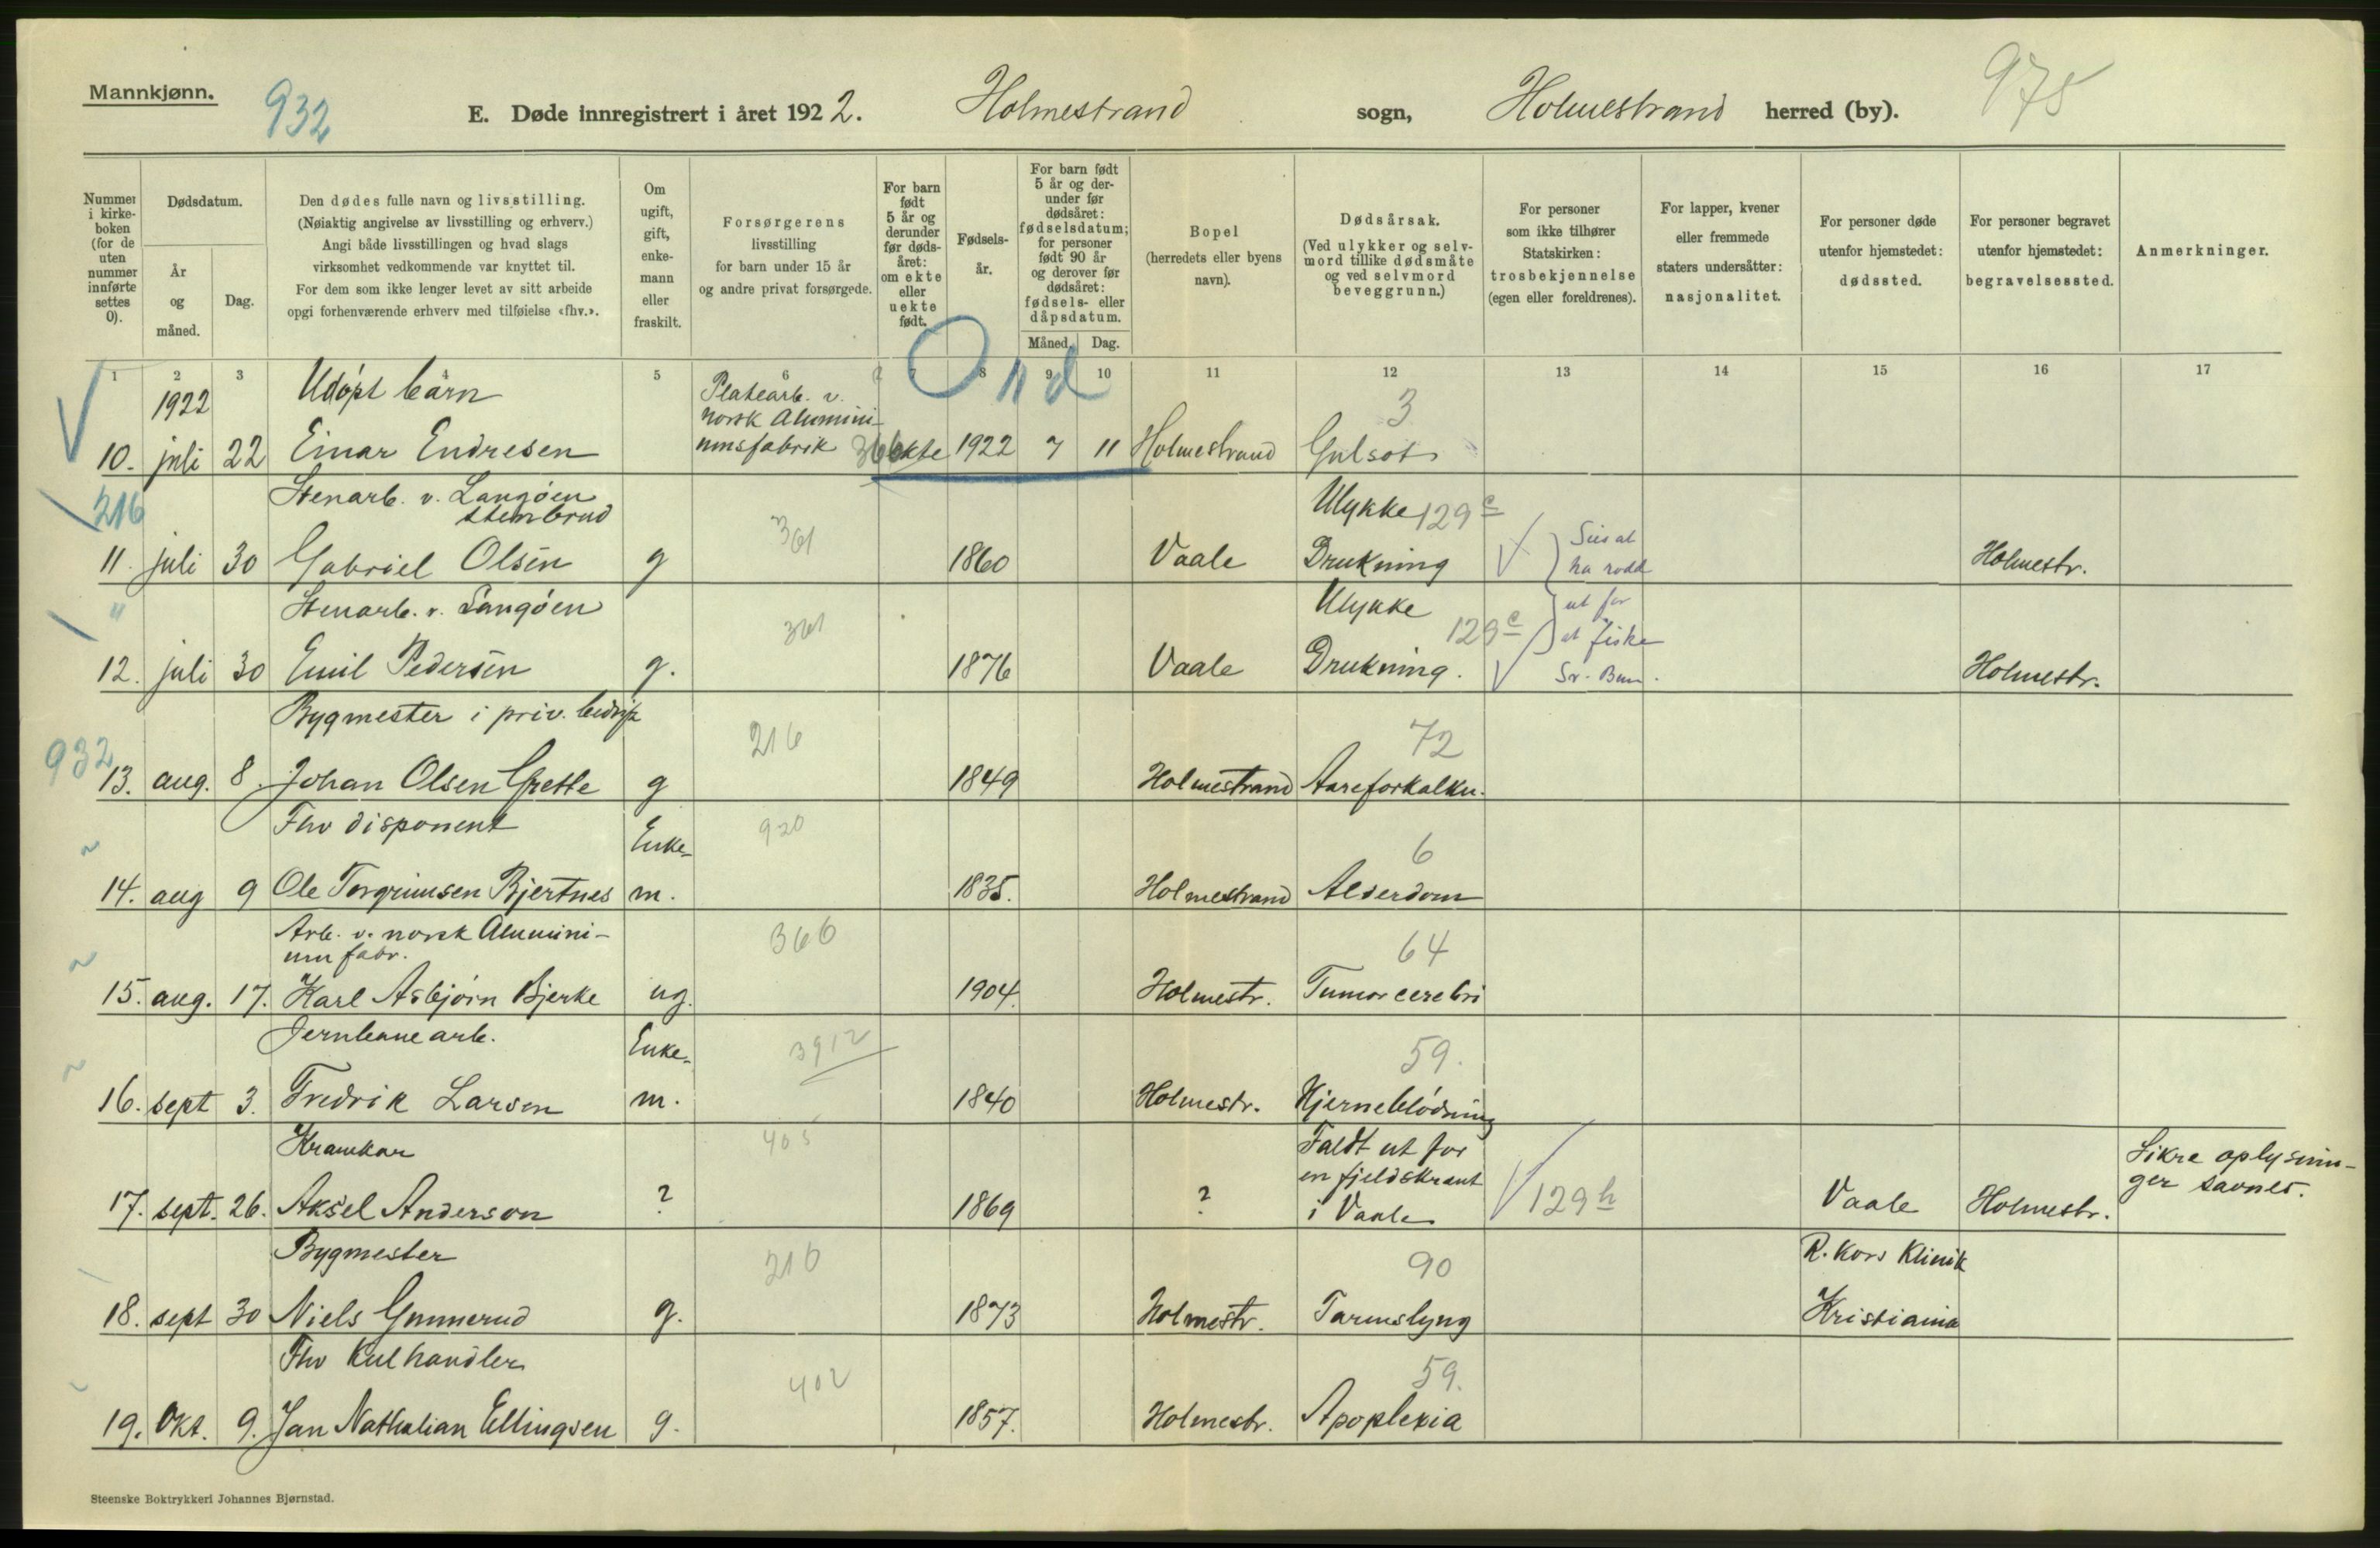 Mannkjønn.
932
E. Døde innregistrert i året 1922. Holmestrand sogn, Holmestrand herred (by).
975
Nummer i kirkeboken (for de uten nummer innførte settes 0).
Dødsdatum.
År og måned.
Dag.
Den dødes fulle navn og livsstilling.
(Nøiaktig angivelse av livsstilling og erhverv.)
Angi både livsstillingen og hvad slags
virksomhet vedkommende var knyttet til.
For dem som ikke lenger levet av sitt arbeide
opgi forhenværende erhverv med tilføielse «fhv.».
Om ugift, gift, enkemann eller fraskilt.
Forsørgerens
livsstilling
for barn under 15 år
og andre privat forsørgede.
For barn født 5 år og derunder før dødsåret: om ekte eller uekte født.
Fødselsår.
For barn født 5 år og derunder før dødsåret: fødselsdatum; for personer født 90 år og derover før dødsåret: fødsels- eller dåpsdatum.
Måned. Dag.
Bopel
(herredets eller byens
navn).
Dødsårsak.
(Ved ulykker og selvmord tillike dødsmåte og ved selvmord beveggrunn.)
For personer
som ikke tilhører
Statskirken:
trosbekjennelse
(egen eller foreldrenes).
For lapper, kvener
eller fremmede
staters undersåtter:
nasjonalitet.
For personer døde
utenfor hjemstedet:
dødssted.
For personer begravet
utenfor hjemstedet:
begravelsessted.
Anmerkninger.
1 2 3 4 5 6 7 8 9 10 11 12 13 14 15 16 17
0 11 d
1922 Udøpt barn Platearb. v. 3
norsk Alumini-
10. juli 22 Einar Endresen umsfabrik 366 ekte 1922 7 11 Holmestrand Gulsot
216 Stenarb. v. Langøen Ulykke 129 c
stenbrud
361 Sies at
11. juli 30 Gabriel Olsen g 1860 Vaale Drukning ha rodd Holmestr.
" Stenarb. v. Langøen 361 Ulykke 129 c ut for
at fiske
12. juli 30 Emil Pedersen g. 1876 Vaale Drukning. Holmestr.
Bygmester i priv. bedrift 216 72
932 13. aug. 8. Johan Olsen Grette g 1849 Holmestrand Aareforkalkn.
Fhv disponent Enke- 920 6
14. aug 9 Ole Torgrimsen Bjertnes m. 1835. Holmestrand Alderdom
Arb. v. norsk Alumini- 366 64
um fabr.
15. aug. 17. Karl Asbjørn Bjerke ug. 1904. Holmestr. Tumor cerebri
Jernbanearb. Enke- 3912 59.
16. sept 3. Fredrik Larsen m. 1840 Holmestr. Hjerneblødning
Kramkar 405 Faldt ut for Sikre oplysnin-
en fjeldskrent ger savnes.
17. sept. 26. Aksel Anderson ? 1869 ? i Vaale 129 h Vaale Holmestr.
Bygmester 216 90 R. Kors Klinik
18. sept 30 Niels Gunnerud g. 1873 Holmestr. Tarmslyng Kristiania
Fhv Kulhandler 402 59.
19. Okt. 9. Jan Nathalian Ellingsen g. 1857. Holmestr. Apoplexia
Steenske Boktrykkeri Johannes Bjørnstad.